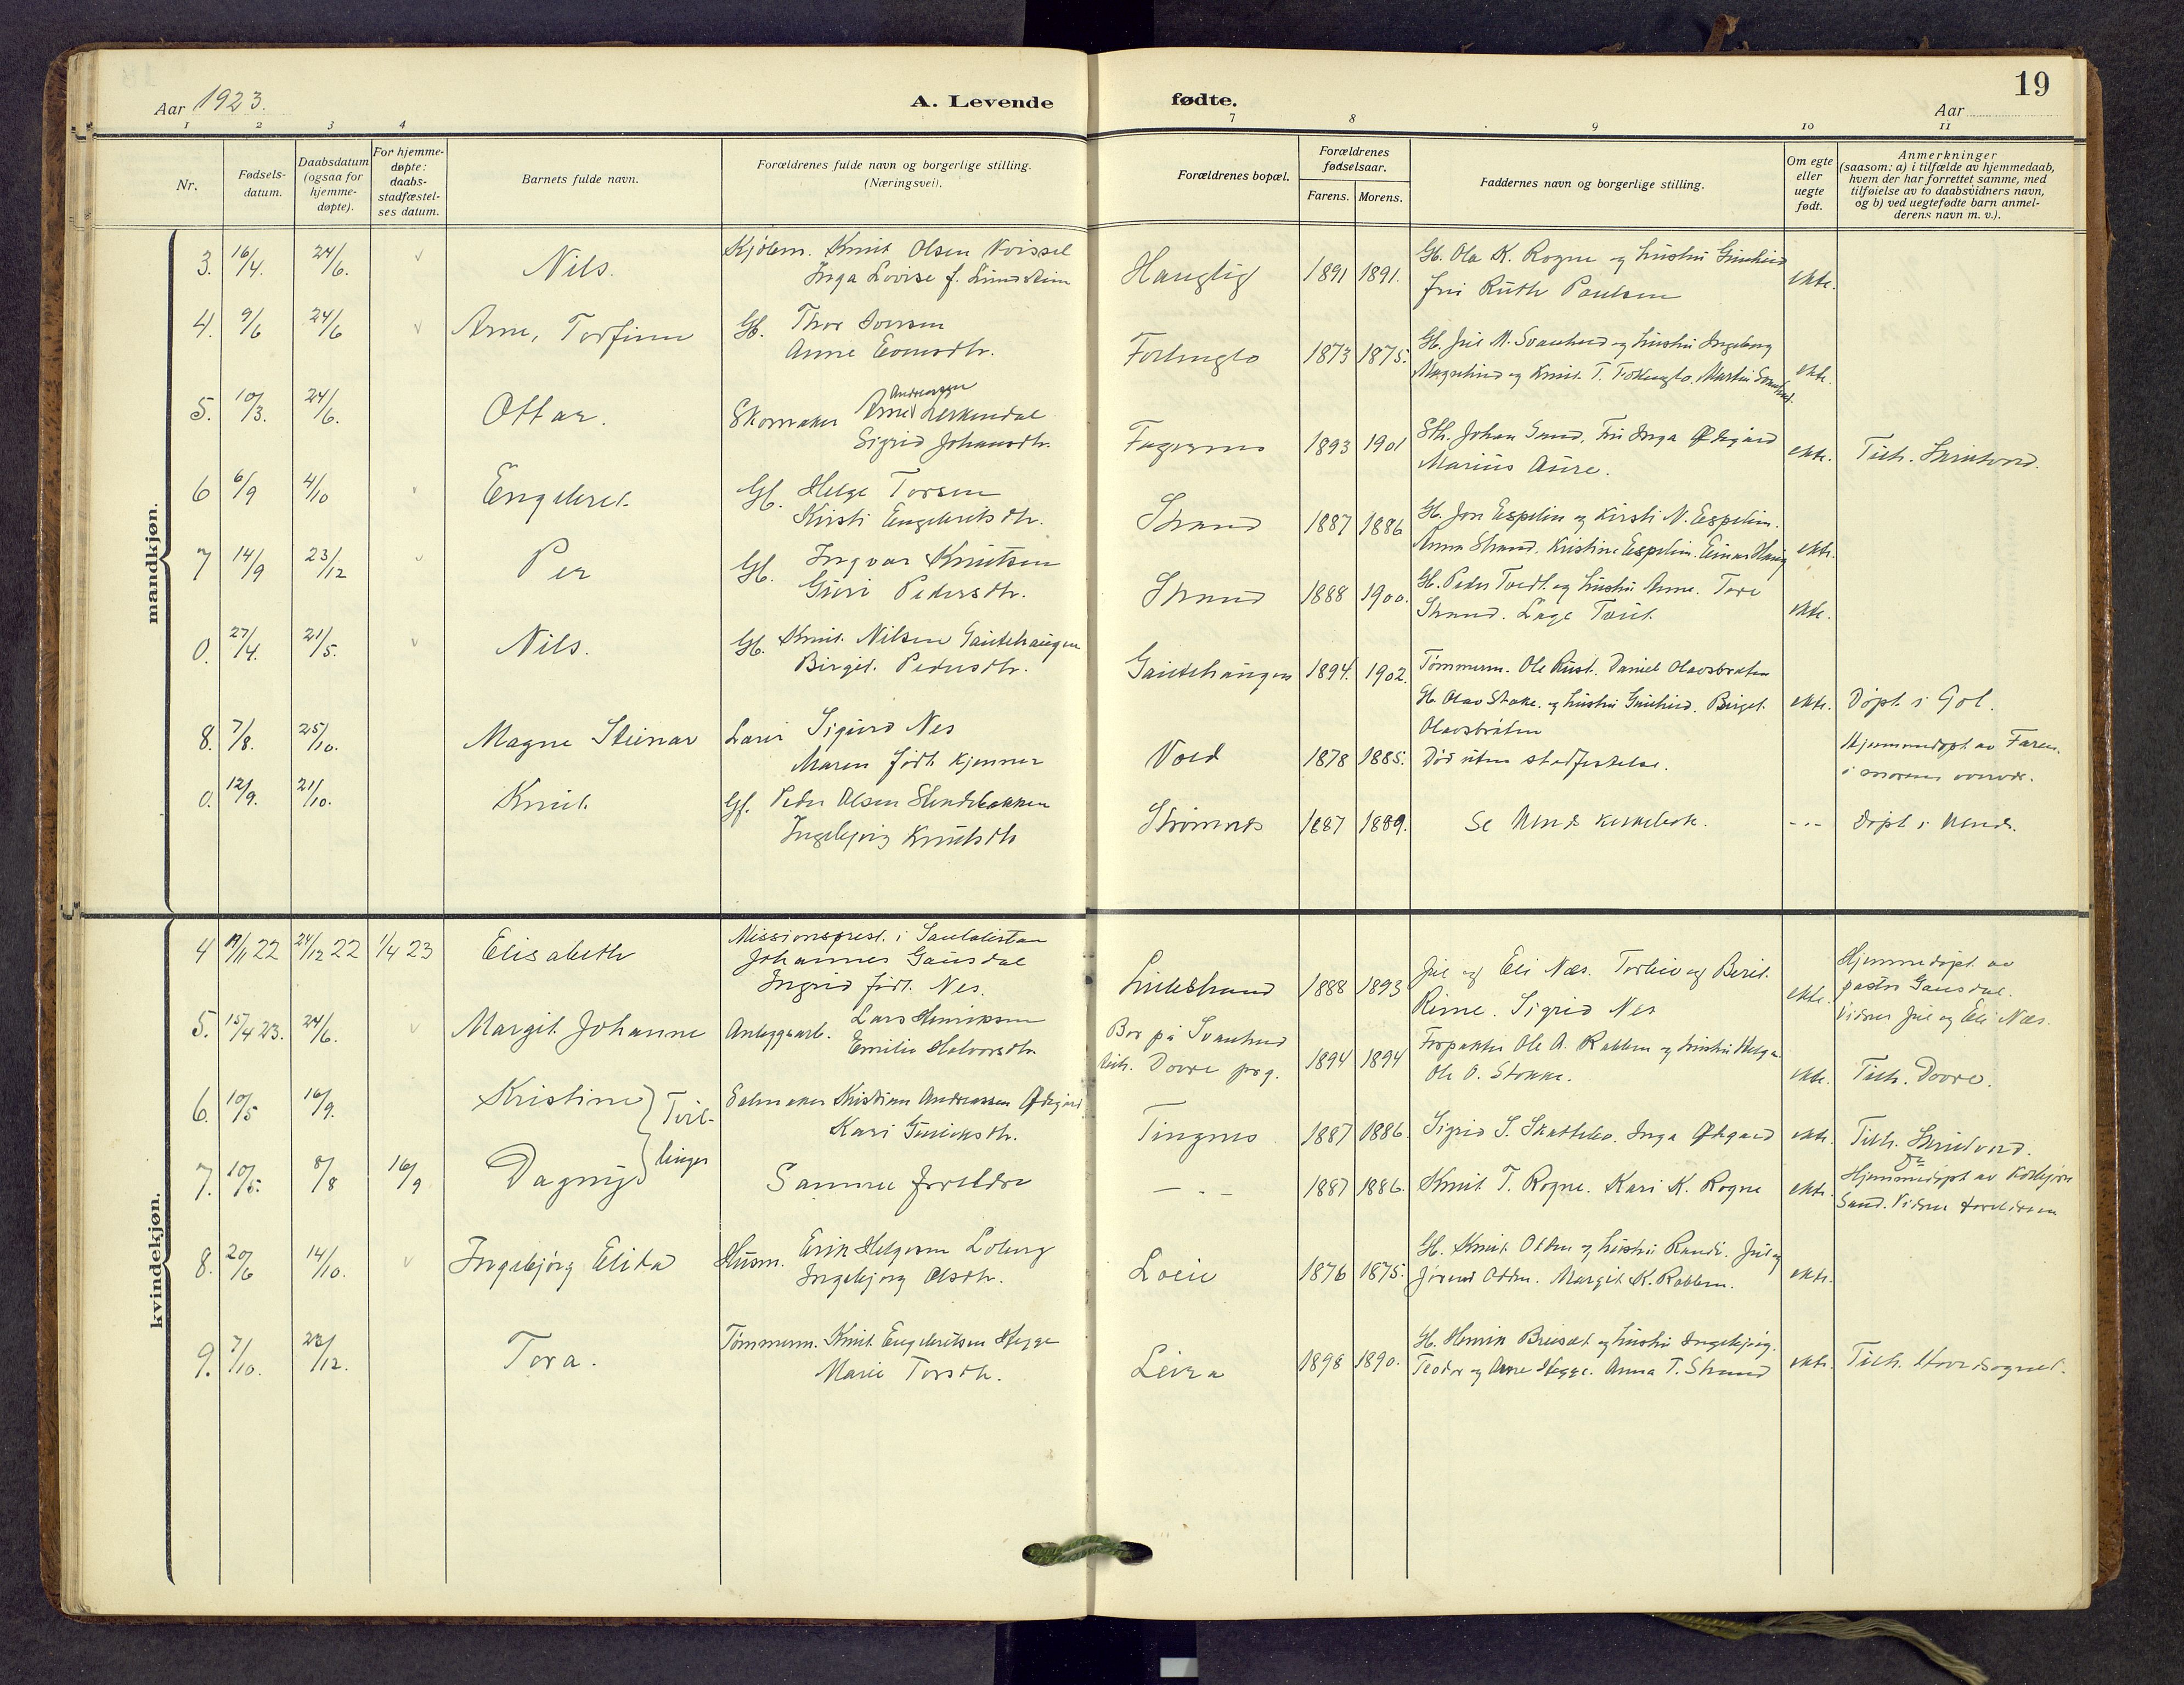 19
Aar 1923.
A. Levende fødte.
Aar
1 2 3 4 7 8 9 10 11
Nr.
Fødsels-
datum.
Daabsdatum
(ogsaa for
hjemme-
døpte).
For hjemme-
døpte:
daabs-
stadfæstel-
ses datum.
Barnets fulde navn.
Forældrenes fulde navn og borgerlige stilling.
(Næringsvei).
Forældrenes bopæl.
Forældrenes
fødselsaar.
Farens. Morens.
Faddernes navn og borgerlige stilling.
Om egte
eller
uegte
født.
Anmerkninger
(saasom: a) i tilfælde av hjemmedaab,
hvem der har forrettet samme, med
tilføielse av to daabsvidners navn,
og b) ved uegtefødte barn anmel-
derens navn m. v.).
mandkjøn.
3. 16/4. 24/6. Nils. Knut Olsen
Inga Lovise f.
Hauglig 1891 1891. Gb. Ola K. Rogne og hustru
Ruth Paulsen ekte.
4. 9/6 24/6 Arne, Torfinn Gb. Thor
Anne
1873 1875. Gb. Juul M. Svanhud og hustru Ingeborg
og Knut T. Martin ekte.
5. 10/3. 24/6. Ottar. Skomaker Arne Andreasen Lerkendal
Sigrid Johansdtr.
Fagernes 1893 1901 Johan Fru Inga Ødegård
Marius Aure. ekte. Tilh. Skrutvold.
6 6/9 4/10 Engebret. Gb. Helge Torsen
Kirsti Engebretsdtr.
Strand 1887 1886 Gb. Jon Espelien og Kirsti N. Espelien.
Anna Strand. Kristine Espelien. Einar ekte.
7 14/9 23/12 Per Gb. Ingvar Knutsen
Guri Pedersdtr.
Strand 1888 1900. Gb. Peder Tvedt og hustru Anne. Tore
Strand. ekte.
0. 27/4. 21/5. Nils. Gb. Knut Nilsen Gautehaugen
Birgit Pedersdtr.
Gautehaugen 1894. 1902. Tømmerm. Ole Rust. Daniel Olavsbråten
Gb. Olav og hustru Birgit
Olavsbråten ekte. Døpt i Gol.
8. 7/8. 25/10. Magne Steinar Sigurd Nes
Maren født Kjenner
Vold 1878 1885. Død uten stadfestelse. Hjemmedøpt av Faren
i morens
0. 12/9. 21/10. Knut Gb. Peder Olsen
Ingebjørg Knutsdtr
Strømnes 1887 1889. Se kirkebok. - - - Døpt i
kvindekjøn.
4 22 24/12 22 1/4 23 Elisabeth Missionsprest i Santalistan
Johannes Gausdal
Ingrid født Nes.
Lindestrand 1888 1893 Juul og Eli Næs. Torleiv og Berit
Sigrid Nes ekte. Hjemmedøpt av
pastor Gausdal.
Vidner Juul og Eli Næs.
5. 15/4 23. 24/6. Margit Johanne Anleggsarb. Lars Henriksen
Emilie Halvorsdtr
Bor på Svanhud
tilh. Dovre prg. 1894 1894 Forpakter Ole A. Rabben og hustru Helga
Ole O. Stokke. ekte. Tilh. Dovre.
6. 10/5 16/9. Kristine Tvil- Salmaker Kristian Andreassen Ødegård
Kari
Tingnes 1887 1886. Sigrid S. Skattebo. Inga Ødegaard ekte. Tilh. Skrutvold.
7. 10/5. 8/8 16/9 Dagny linger Samme foreldre
— " — 1887 1886. Knut T. Rogne. Kari K. Rogne ekte. Hjemmedøpt av
Vidner foreldrene
8. 20/6 14/10. Ingebjørg Elida Husm. Erik Helgesen
Ingebjørg Olsdtr.
1876 1875. Gb. Knut og hustru Randi. Juul og
Jørand Margit K. Rabben. ekte.
9. 7/10. /12. Tora. Tømmerm. Knut Engebretsen Hegge
Marie Torsdtr.
Leira 1898 1890. Gb. Henrik og hustru Ingebjørg.
Teodor og Arne Hegge. Anna T. Strand ekte. Tilh. Hovedsognet.